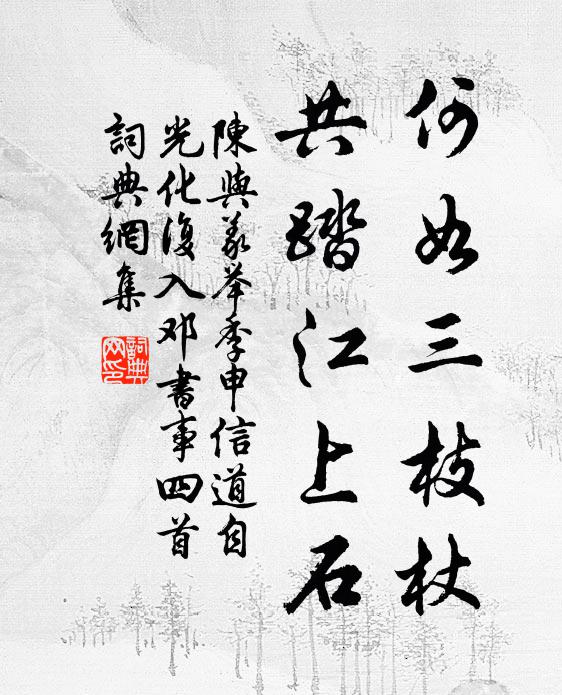 何如三枝杖
共踏江上石
陳與義举季申信道自
光化復入邓書事四首
詞典網集
詞典
网印